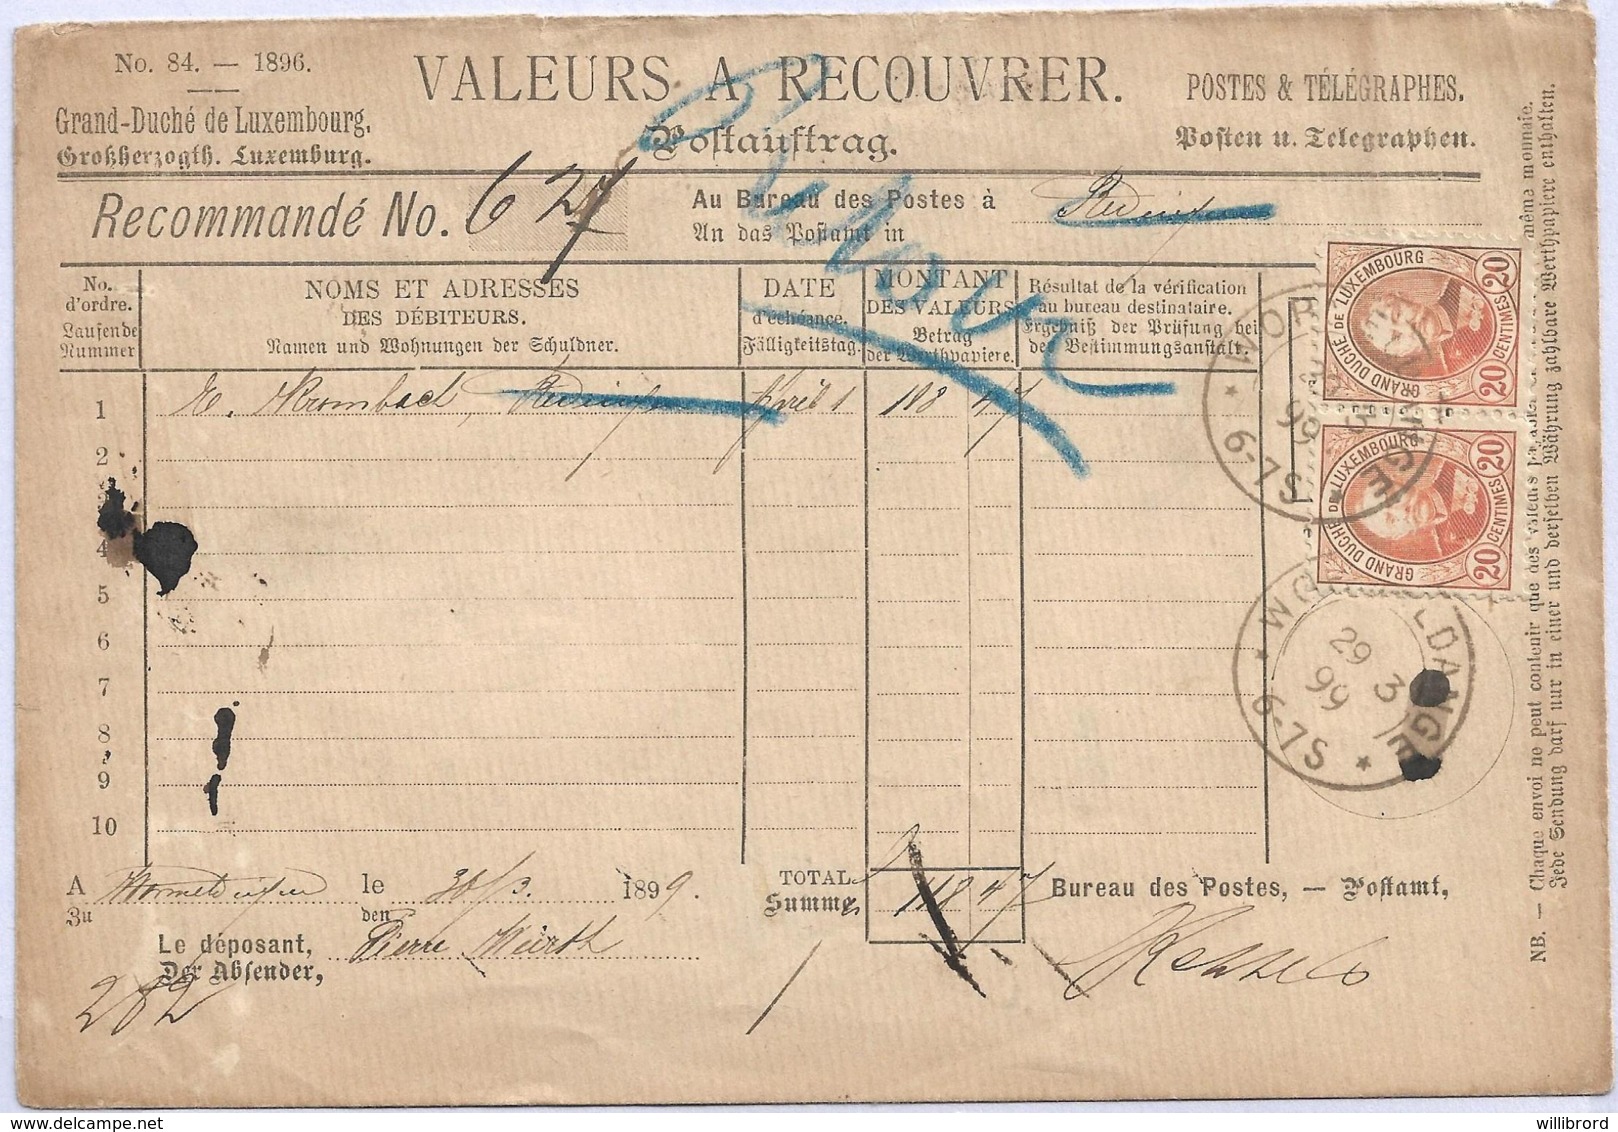 No. 84. — 1896.
VALEURS A RECOUVRER.
Postauftrag.
POSTES & TÉLÉGRAPHES.
Posten u. Telegraphen.
Grand-Duché de Luxembourg.
Großherzogth. Luxemburg.
Recommandé No. 627
Au Bureau des Postes à
An das Postamt in
No. d'ordre.
Laufende Nummer
NOMS ET ADRESSES
DES DÉBITEURS.
Namen und Wohnungen der Schuldner.
DATE
d'échéance.
Fälligkeitstag.
MONTANT
DES VALEURS
Betrag
der Werthpapiere.
Résultat de la vérification
au bureau destinataire.
Ergebniß der Prüfung bei
der Bestimmungsanstalt.
1 E. Krombach, April 1 118 47
2
3
4
5
6
7
8
9
10
A le 30/3. 1899.
Zu den
TOTAL
Summe 118 47
Bureau des Postes, — Postamt,
Le déposant, Pierre Würth
Der Absender,
282
GRAND DUCHÉ DE LUXEMBOURG
20 CENTIMES 20
GRAND DUCHÉ DE LUXEMBOURG
20 CENTIMES 20
29 3 99
6-7S
6-7S
NB. — Chaque envoi ne peut contenir que des valeurs même monnaie.
Jede Sendung darf nur in einer und derselben Währung zahlbare Werthpapiere enthalten.
willibrord